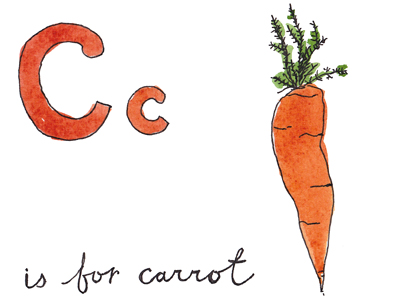 C c
is for carrot